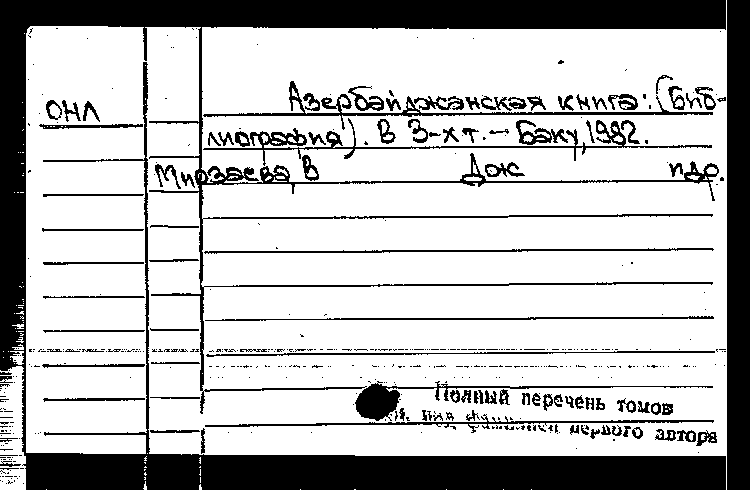 ОНЛ
Азербайджанская книга: (Биб-
лиография). В 3-х т. — Баку, 1982.
Мирзаева, В Дж пдр.
Полный перечень томов
под фамилией первого автора